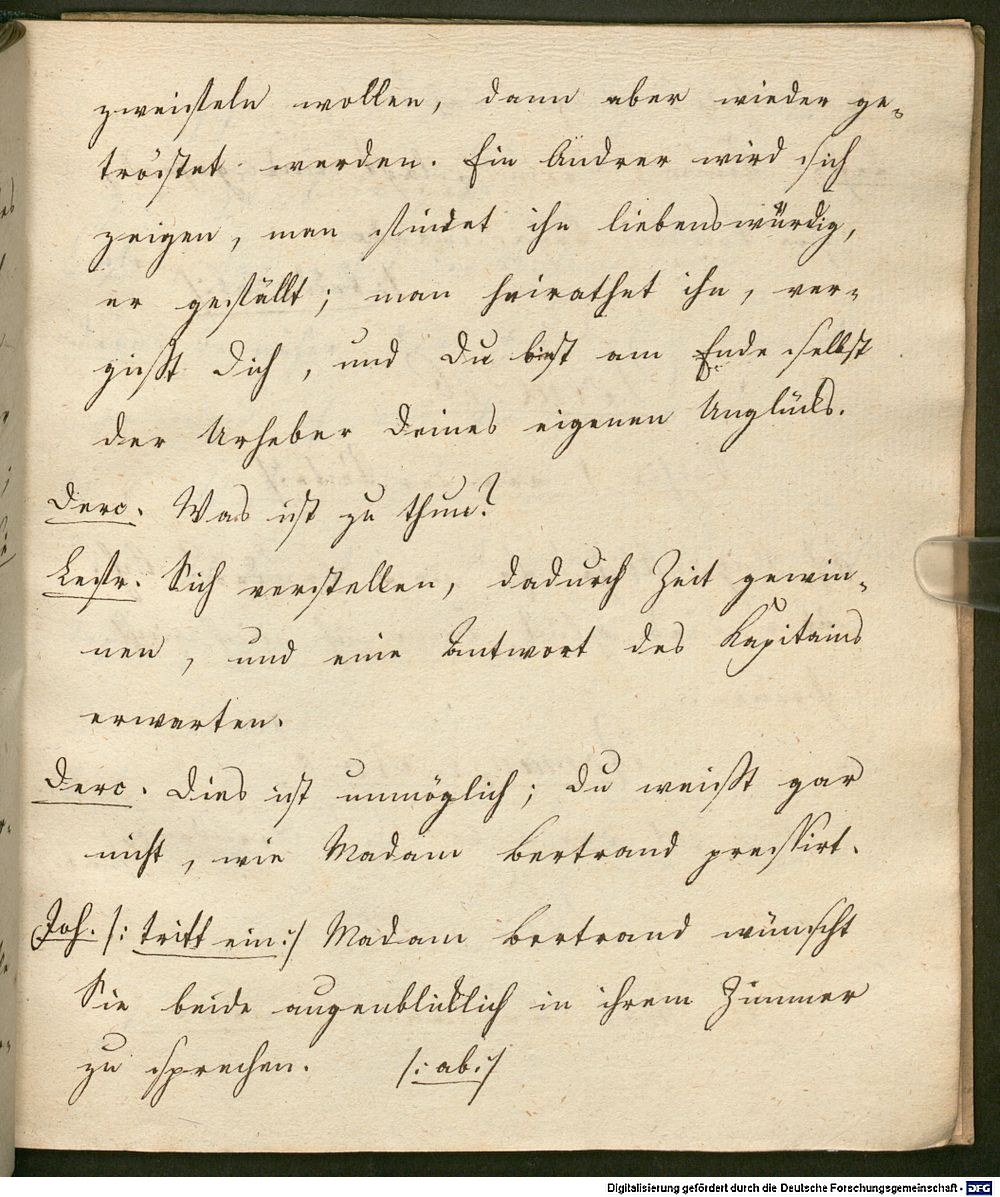 zweifeln wollen, dann aber wieder ge-
tröstet werden. Ein Andrer wird sich
zeigen, man findet ihn liebenswürdig,
er gefällt; man heirathet ihn, ver-
gißt Dich, und Du bist am Ende selbst
der Urheber Deines eigenen Unglücks.
Derc. Was ist zu thun?
Lestr. Sich verstellen, dadurch Zeit gewin-
nen, und eine Antwort des Kapitains
erwarten.
Derc. Dies ist unmöglich; Du weißt gar
nicht, wie Madam Bertrand pressirt.
Joh. /: tritt ein :/ Madam Bertrand wünscht
Sie beide augenblicklich in ihrem Zimmer
zu sprechen. /: ab :/
Digitalisierung gefördert durch die Deutsche Forschungsgemeinschaft - DFG